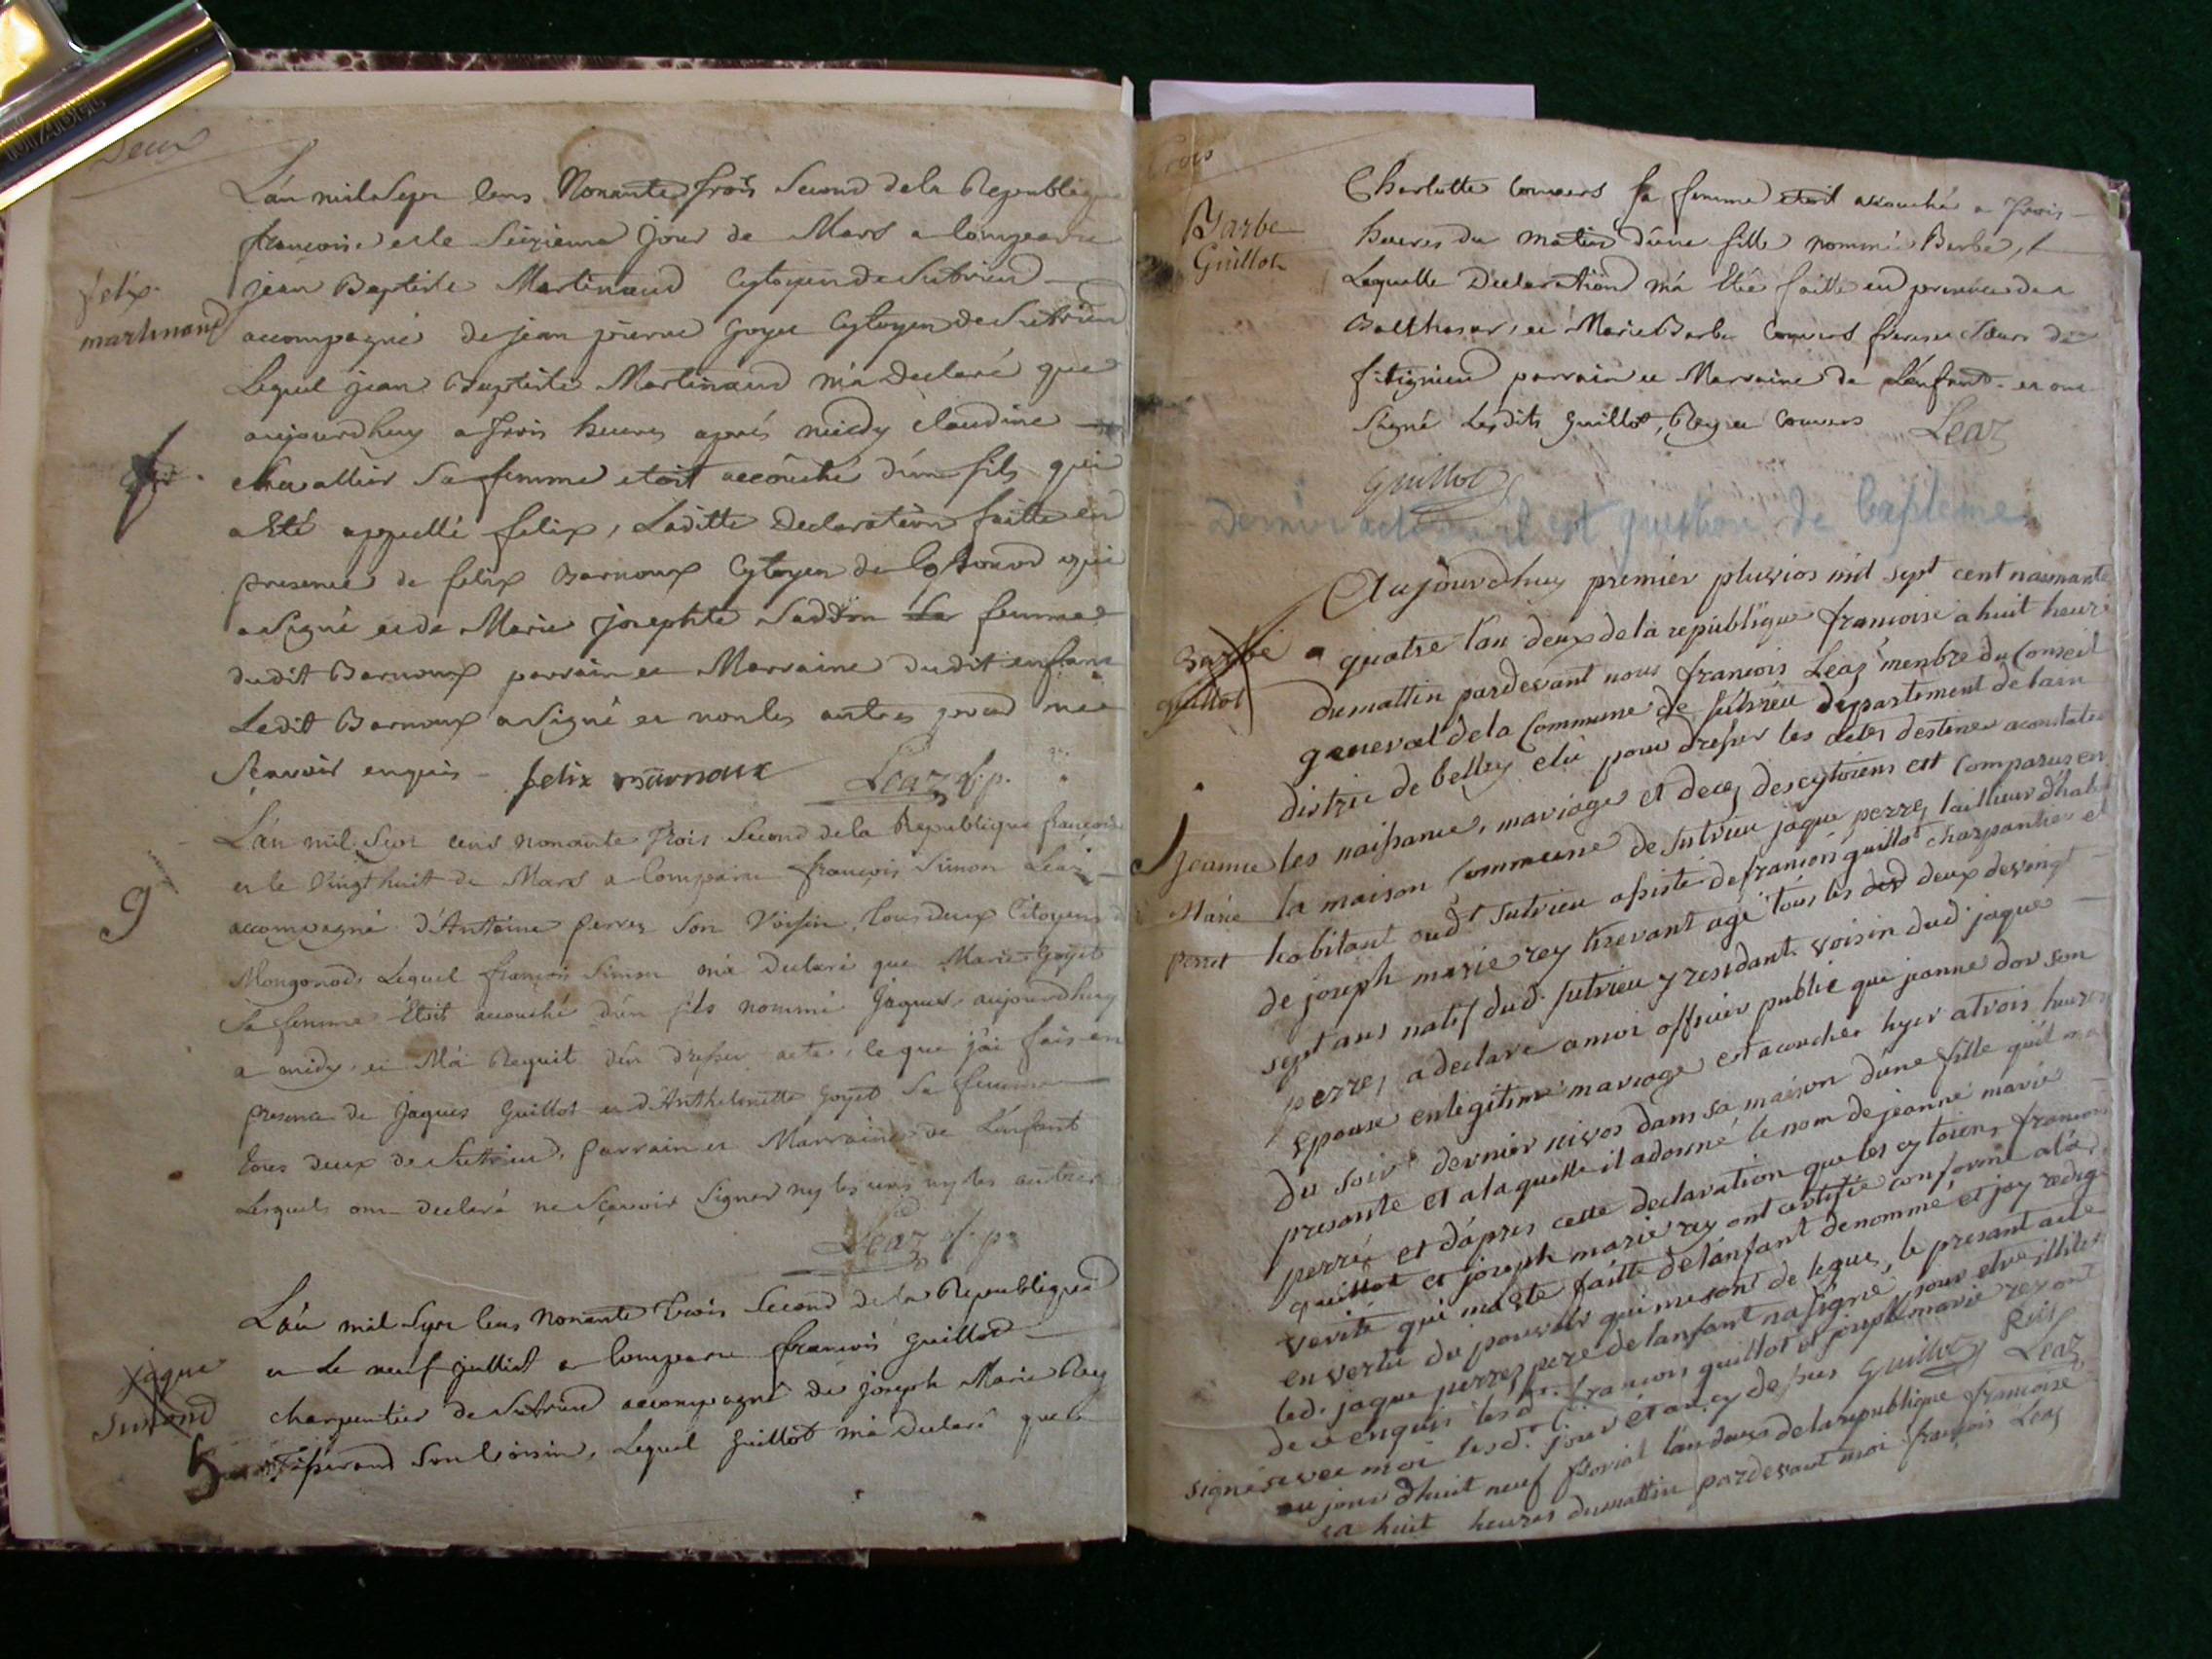 Deux
L'an mil sept cens Nonante trois Second de la Republique
françoise et le Seizieme Jour de Mars a comparu
jean Baptiste Martinand Cytoyen de Sutrieu
felix
martinand
accompagné de jean pierre Goyet Cytoyen de Sutrieu
Lequel jean Baptiste Martinand m'a Declaré que
aujourdhuy a trois heures aprés midy claudine
chevallier Sa femme etoit accouché d'un fils qui
a Eté appellé felix, Laditte Declaration faitte en
presence de felix Barnoux Cytoyen de qui
a Signé et de Marie josephte Saddon Sa femme
dudit Barnoux parrain et Marraine dudit enfant
Ledit Barnoux a Signé et non les autres pour ne
Scavoir enquis felix Barnoux Leaz of. p.
L'an mil Sept cens nonante Trois Second de la Republique françoise
et le Vingt huit de Mars a Comparu françois Simon Leaz
9
accompagné d'Antoine perrez Son Voisin, tous deux Citoyens d
Mongonod, Lequel françois Simon m'a Declaré que Marie Goyet
Sa femme Etoit accouché d'un fils nommé Jaques, aujourdhuy
a midy, et M'a Requit d'en dresser acte, le que j'ai fais en
presence de Jaques Guillot et d'Anthelmette Goyet Sa femme
tous deux de Sutrieu, parrain et Marraine de L'enfant
Lesquels ont declaré ne Sçavoir Signer ny les uns ny les autres
Leaz of. p.
L'an mil Sept cens Nonante Trois Second de la Republique
et Le neuf juillet a Comparu francois Guillot
jaque
Simond
charpentier de Sutrieu accompagné de joseph Marie Rey
5
Tisserand Son Voisin, Lequel Guillot m'a Declaré que
Trois
Barbe
Guillot
Charlotte Convers Sa femme etoit accouché a Trois
heures du matin d'une fille nommé Barbe,
Laquelle Declaration m'a Eté faitte en presence de
Balthasar, et Marie Barbe Convers freres et Sœurs de
fitignieu parrain et Marraine de L'enfant et ont
Signé Lesdits Guillot, Rey et Convers Leaz
Guillot
Dernier acte où il est question de baptême
Aujourdhuy premier pluvios mil sept cent nonante
Barbe
guillot
quatre l'an deux de la republique francoise a huit heure
du mattin pardevant nous francois Leaz menbre du Conseil
general de la Commune de Sutrieu departement de lain
distric de belley elü pour dresser les actes destiner a constater
Jeanne
Marie
perret
les naissance, mariages et deces des cytoiens est Comparus en
la maison Commune de Sutrieu jaque perrez tallieur d'habit
habitant aud^t Sutrieu assisté de francois guillot charpantier et
de joseph marie rey tiserant agé tous les deux de vingt
sept ans natif dud. Sutrieu y residant voisin dud. jaque
perrez a declare a moi officier public que jeanne dor son
epouse en legitime mariage est acoucher hyer a trois heures
du soir dernier nivos dans sa maison d'une fille qu'il ma
presante et a laquelle il a donné le nom de jeanne marie
perré et d'apres cette declaration que les cytoiens francois
guillot et joseph marie rey ont certifie conforme a la
verité qui m'a ete faitte de l'anfant denommé et j'ay redigé
en vertu du pouvoir qui me sont delegues, le presant acte
led. jaque perrez pere de lanfant na signé, pour etre illiteré
de ce enquis lesd^t. francois guillot et joseph marie rey ont
signé avec moi lesd^t. jour et an cy dessus Guillot Rey
Leaz
aujourdhuit neuf florial l'an deux de la republique francoise
a huit heures du mattin pardevant moi françois Leaz